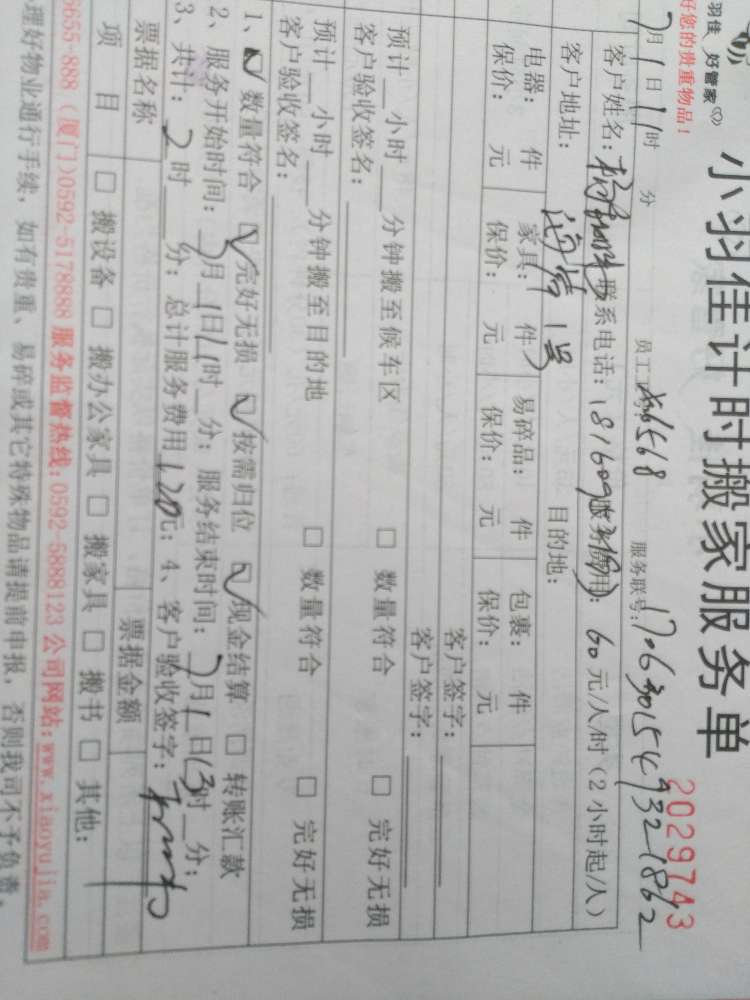 羽佳 好管家
好您的贵重物品！
小羽佳计时搬家服务单
2029743
7月1日11时 分 员工工号: 服务联号：
客户姓名： 联系电话： 服务费用：60元/人/时（2小时起/人）
客户地址： 1号 目的地：
电器： 件 家具： 件 易碎品： 件 包裹： 件
保价： 元 保价： 元 保价： 元 保价： 元
客户签字：
客户签字：
预计__小时__分钟搬至候车区 □ 数量符合 □ 完好无损
客户验收签名：
预计__小时__分钟搬至目的地 □ 数量符合 □ 完好无损
客户验收签名：
1、☑ 数量符合 ☑ 完好无损 ☑ 按需归位 ☑ 现金结算 □ 转账汇款
2、服务开始时间：7月1日11时__分；服务结束时间：7月1日13时__分；
3、共计：2时__分；总计服务费用120元；4、客户验收签字：
票据名称 票据金额
项 目 □ 搬设备 □ 搬办公家具 □ 搬家具 □ 搬书 □ 其他：
6655-888（厦门）0592-5178888 服务监督热线：0592-5888123 公司网站：www.xiaoyujia.com
理好物业通行手续，如有贵重、易碎或其它特殊物品请提前申报，否则我司不予负责。